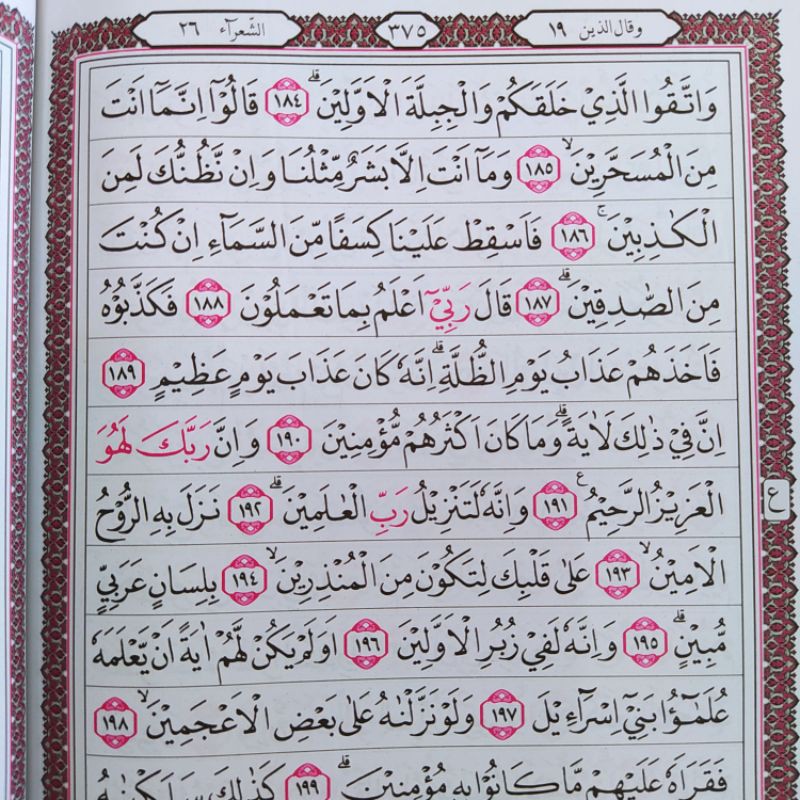 وقال الذين ١٩
٣٧٥
الشّعرآء ٢٦
وَاتَّقُوا الَّذِيْ خَلَقَكُمْ وَالْجِبِلَّةَ الْاَوَّلِيْنَ ۗ ١٨٤ قَالُوْٓا اِنَّمَآ اَنْتَ
مِنَ الْمُسَحَّرِيْنَ ۙ ١٨٥ وَمَآ اَنْتَ اِلَّا بَشَرٌ مِّثْلُنَا وَاِنْ نَّظُنُّكَ لَمِنَ
الْكٰذِبِيْنَ ۚ ١٨٦ فَاَسْقِطْ عَلَيْنَا كِسَفًا مِّنَ السَّمَاۤءِ اِنْ كُنْتَ
مِنَ الصّٰدِقِيْنَ ۗ ١٨٧ قَالَ رَبِّيْٓ اَعْلَمُ بِمَا تَعْمَلُوْنَ ١٨٨ فَكَذَّبُوْهُ
فَاَخَذَهُمْ عَذَابُ يَوْمِ الظُّلَّةِ ۗ اِنَّهٗ كَانَ عَذَابَ يَوْمٍ عَظِيْمٍ ١٨٩
اِنَّ فِيْ ذٰلِكَ لَاٰيَةً ۗ وَمَا كَانَ اَكْثَرُهُمْ مُّؤْمِنِيْنَ ١٩٠ وَاِنَّ رَبَّكَ لَهُوَ
الْعَزِيْزُ الرَّحِيْمُ ࣖ ١٩١ وَاِنَّهٗ لَتَنْزِيْلُ رَبِّ الْعٰلَمِيْنَ ۗ ١٩٢ نَزَلَ بِهِ الرُّوْحُ
ع
الْاَمِيْنُ ۙ ١٩٣ عَلٰى قَلْبِكَ لِتَكُوْنَ مِنَ الْمُنْذِرِيْنَ ۙ ١٩٤ بِلِسَانٍ عَرَبِيٍّ
مُّبِيْنٍ ۗ ١٩٥ وَاِنَّهٗ لَفِيْ زُبُرِ الْاَوَّلِيْنَ ١٩٦ اَوَلَمْ يَكُنْ لَّهُمْ اٰيَةً اَنْ يَّعْلَمَهٗ
عُلَمٰۤؤُا بَنِيْٓ اِسْرَاۤءِيْلَ ١٩٧ وَلَوْ نَزَّلْنٰهُ عَلٰى بَعْضِ الْاَعْجَمِيْنَ ۙ ١٩٨
فَقَرَاَهٗ عَلَيْهِمْ مَّا كَانُوْا بِهٖ مُؤْمِنِيْنَ ۗ ١٩٩ كَذٰلِكَ سَلَكْنٰهُ